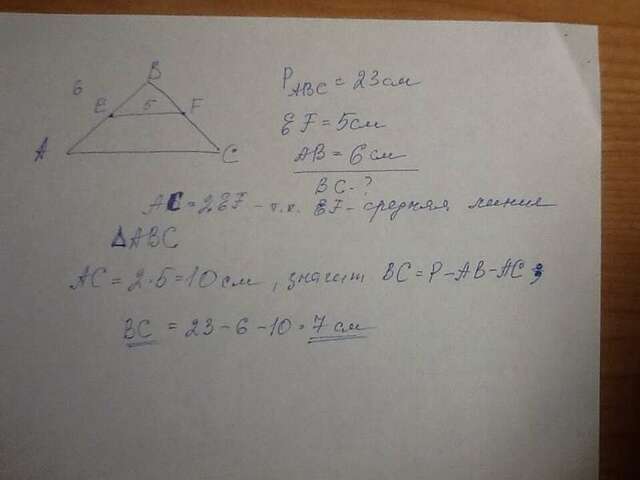 B
6
E 5 F
A C
P ABC = 23 см
EF = 5 см
AB = 6 см
BC - ?
AC = 2EF - т.к. EF - средняя линия
△ABC
AC = 2·5 = 10 см, значит BC = P - AB - AC;
BC = 23 - 6 - 10 = 7 см